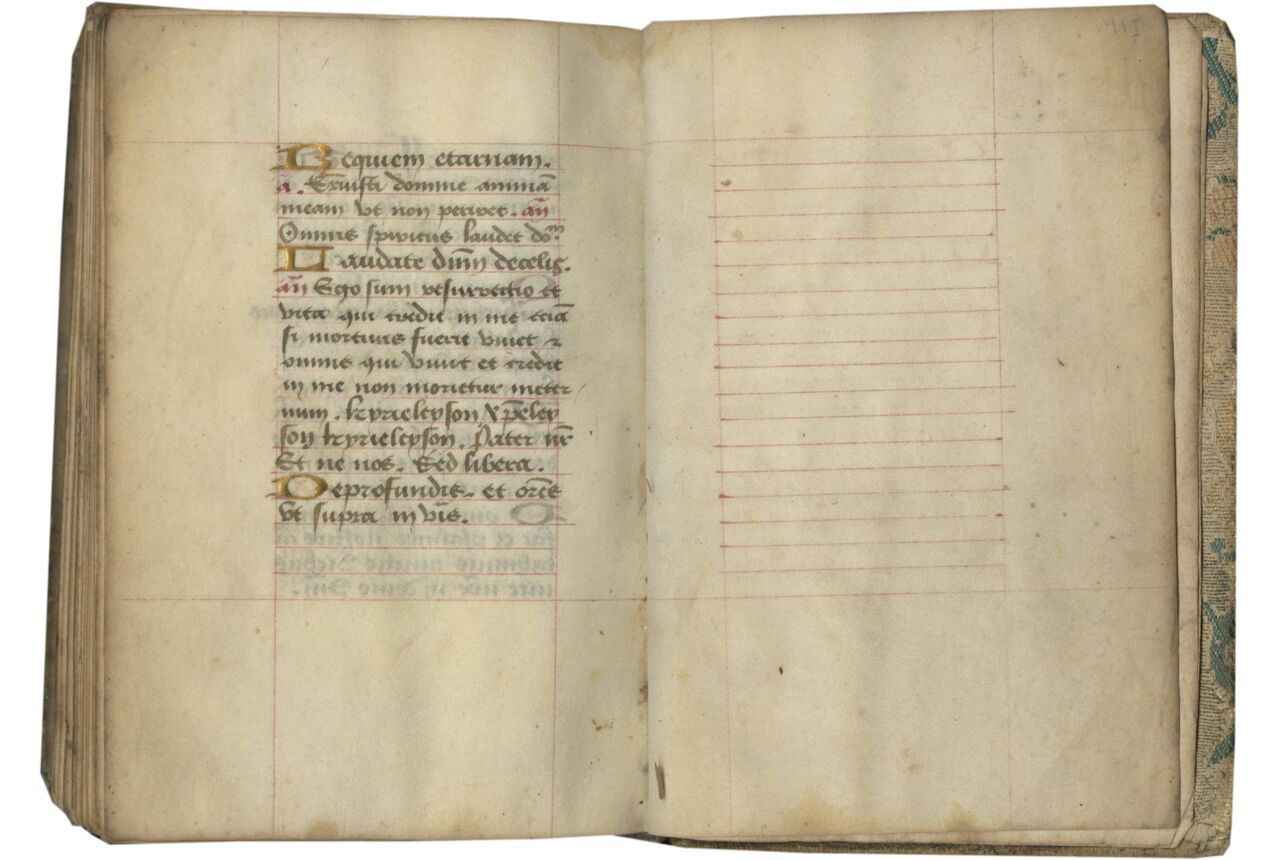 Requiem eternam.
a. Eruisti domine animā
meam vt non periret. añ
Omnis spiritus laudet doᵐ
Laudate dūm decelis.
añ Ego sum resurrectio et
vita qui credit in me eciā
si mortuus fuerit viuet ⁊
omnis qui viuit et credit
in me non morietur ineter
num. kyrieleyson xp̄eley
son kyrieleyson. Pater nr̄
Et ne nos. Sed libera.
Deprofundis. et orōēs
vt supra in vīīs.